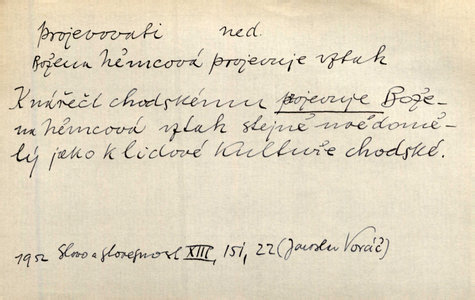 projevovati ned.
Božena Němcová projevuje vztak
K nářečí chodskému projevuje Bože-
na Němcová vztak stejně uvědomě-
lý jako k lidové kultuře chodské.
1952 Slovo a slovesnost XIII, 151, 22 (Jaroslav Voráč)